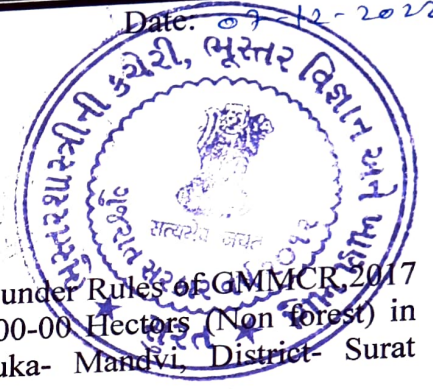 Date: 07-12-2022
ભૂસ્તરશાસ્ત્રીની કચેરી, ભૂસ્તર વિજ્ઞાન અને
ગુજરાત સરકાર
सत्यमेव जयते
સુરત
under Rules of GMMCR,2017
00-00 Hectors (Non forest) in
uka- Mandvi, District- Surat